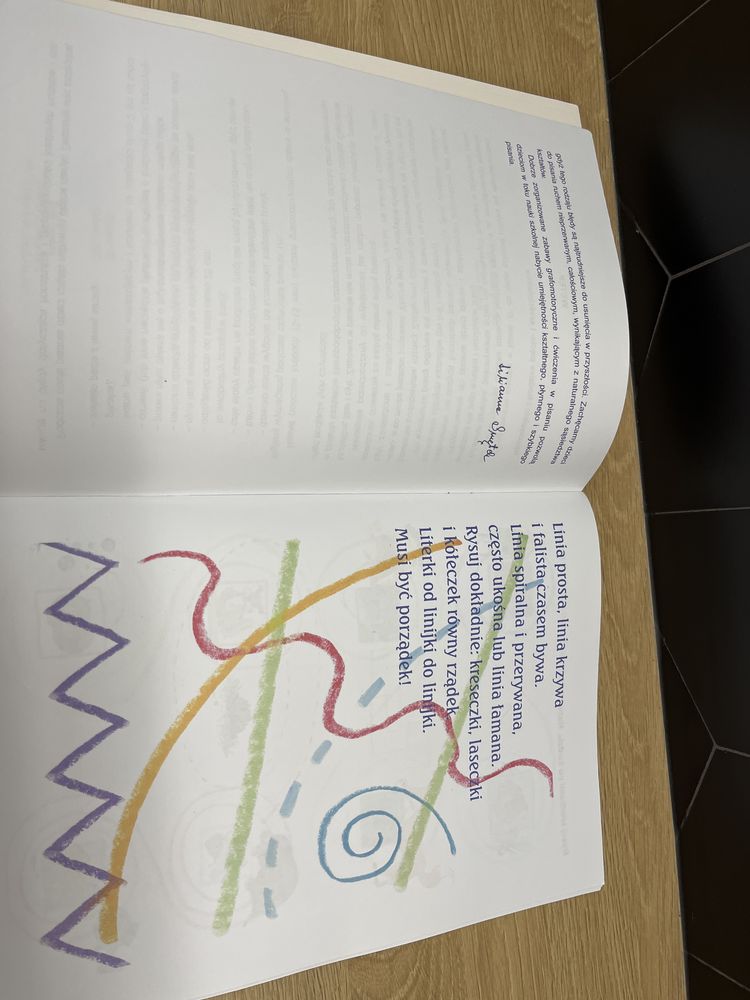 gdyż tego rodzaju błędy są najtrudniejsze do usunięcia w przyszłości. Zachęcamy dzieci
do pisania ruchem nieprzerwanym, całościowym, wynikającym z naturalnego sąsiedztwa
kształtów.
Dobrze zorganizowane zabawy grafomotoryczne i ćwiczenia w pisaniu pozwolą
dzieciom w toku nauki szkolnej nabycie umiejętności kształtnego, płynnego i szybkiego
pisania.
Linia prosta, linia krzywa
i falista czasem bywa.
Linia spiralna i przerywana,
często ukośna lub linia łamana.
Rysuj dokładnie: kreseczki, laseczki
i kółeczek równy rządek.
Literki od linijki do linijki.
Musi być porządek!